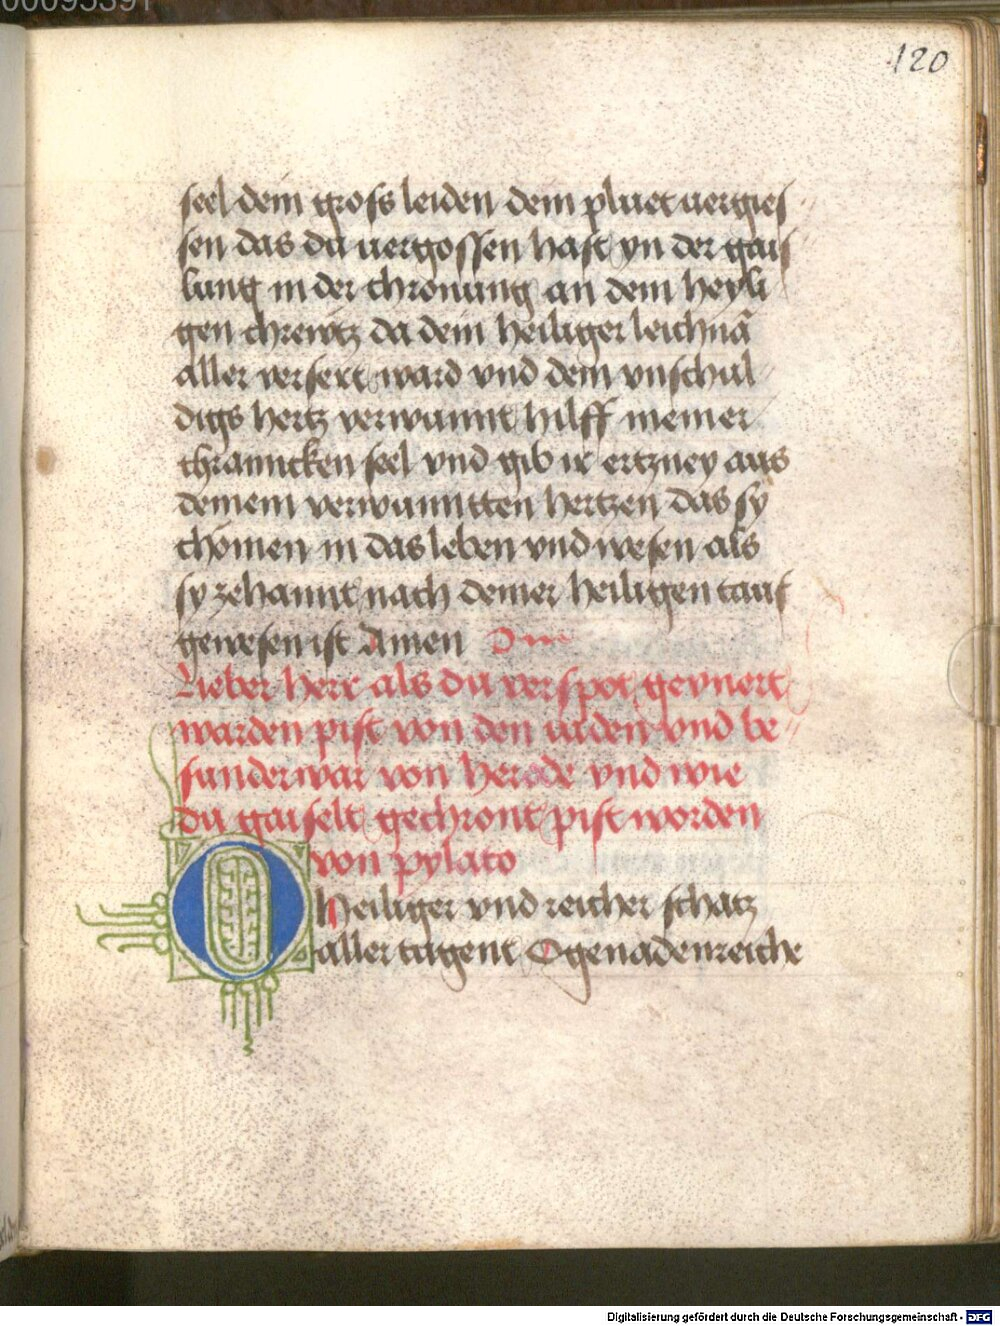 00095391
120
seel dein gross leiden dein pluet uergies
sen das du uergossen hast yn der gais
lung in der chronung an dem heyli
gen chrewtz da dein heiliger leichnā
aller versert ward vnd dein vnschul
digs hertz verwunnt hilff meiner
chranncken seel vnd gib ir ertzney aus
deinem verwunntten hertzen das sy
chömen in das leben vnd wesen als
sy zehannt nach deiner heiligen tauf
gewesen ist Amen
Lieber herr als du verspot geunert
warden pist von den iuden vnd be
sunderwar von herode vnd wie
du gaiselt gechront pist worden
von pylato
O heiliger vnd reicher schatz
aller tugent O genadenreiche
Digitalisierung gefördert durch die Deutsche Forschungsgemeinschaft - DFG